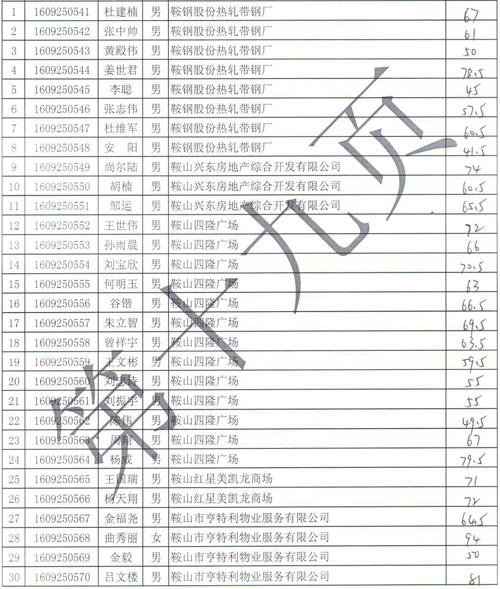 1 1609250541 杜建楠 男 鞍钢股份热轧带钢厂 67
2 1609250542 张中帅 男 鞍钢股份热轧带钢厂 61
3 1609250543 黄殿伟 男 鞍钢股份热轧带钢厂 50
4 1609250544 姜世君 男 鞍钢股份热轧带钢厂 78.5
5 1609250545 李聪 男 鞍钢股份热轧带钢厂 45
6 1609250546 张志伟 男 鞍钢股份热轧带钢厂 57.5
7 1609250547 杜维军 男 鞍钢股份热轧带钢厂 60.5
8 1609250548 安 阳 男 鞍钢股份热轧带钢厂 41.5
9 1609250549 尚尔陆 男 鞍山兴东房地产综合开发有限公司 74
10 1609250550 胡楠 男 鞍山兴东房地产综合开发有限公司 60.5
11 1609250551 邹运 男 鞍山兴东房地产综合开发有限公司 65.5
12 1609250552 王世伟 男 鞍山四隆广场 72
13 1609250553 孙雨晨 男 鞍山四隆广场 66
14 1609250554 刘宝欣 男 鞍山四隆广场 70.5
15 1609250555 何明玉 男 鞍山四隆广场 63
16 1609250556 谷锴 男 鞍山四隆广场 66.5
17 1609250557 朱立智 男 鞍山四隆广场 69.5
18 1609250558 曾祥宇 男 鞍山四隆广场 63.5
19 1609250559 王文彬 男 鞍山四隆广场 59.5
20 1609250560 男 鞍山四隆广场 55
21 1609250561 刘振宇 男 鞍山四隆广场 55
22 1609250562 陈伟 男 鞍山四隆广场 49.5
23 1609250563 男 鞍山四隆广场 67
24 1609250564 杨威 男 鞍山四隆广场 79.5
25 1609250565 男 鞍山红星美凯龙商场 71
26 1609250566 杨天翔 男 鞍山红星美凯龙商场 72
27 1609250567 金福尧 男 鞍山市亨特利物业服务有限公司 64.5
28 1609250568 曲秀丽 女 鞍山市亨特利物业服务有限公司 94
29 1609250569 金毅 男 鞍山市亨特利物业服务有限公司 50
30 1609250570 吕文楼 男 鞍山市亨特利物业服务有限公司 81
第十九页